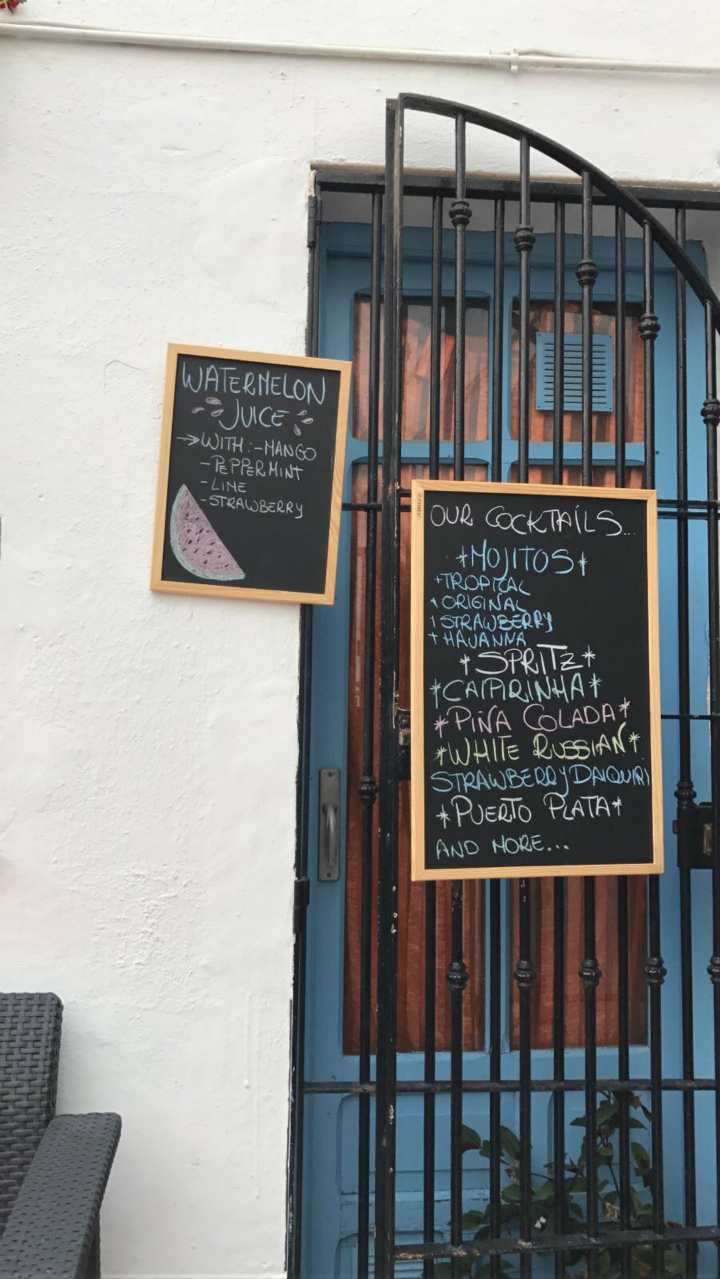 WATERMELON
JUICE
→WITH:-MANGO
-PEPPERMINT
-LIME
-STRAWBERRY
OUR COCKTAILS...
*MOJITOS*
+TROPICAL
+ORIGINAL
+STRAWBERRY
+HAVANNA
*SPRITZ*
*CAIPIRINHA*
*PIÑA COLADA*
*WHITE RUSSIAN*
STRAWBERRY DAIQUIRI
*PUERTO PLATA*
AND MORE...